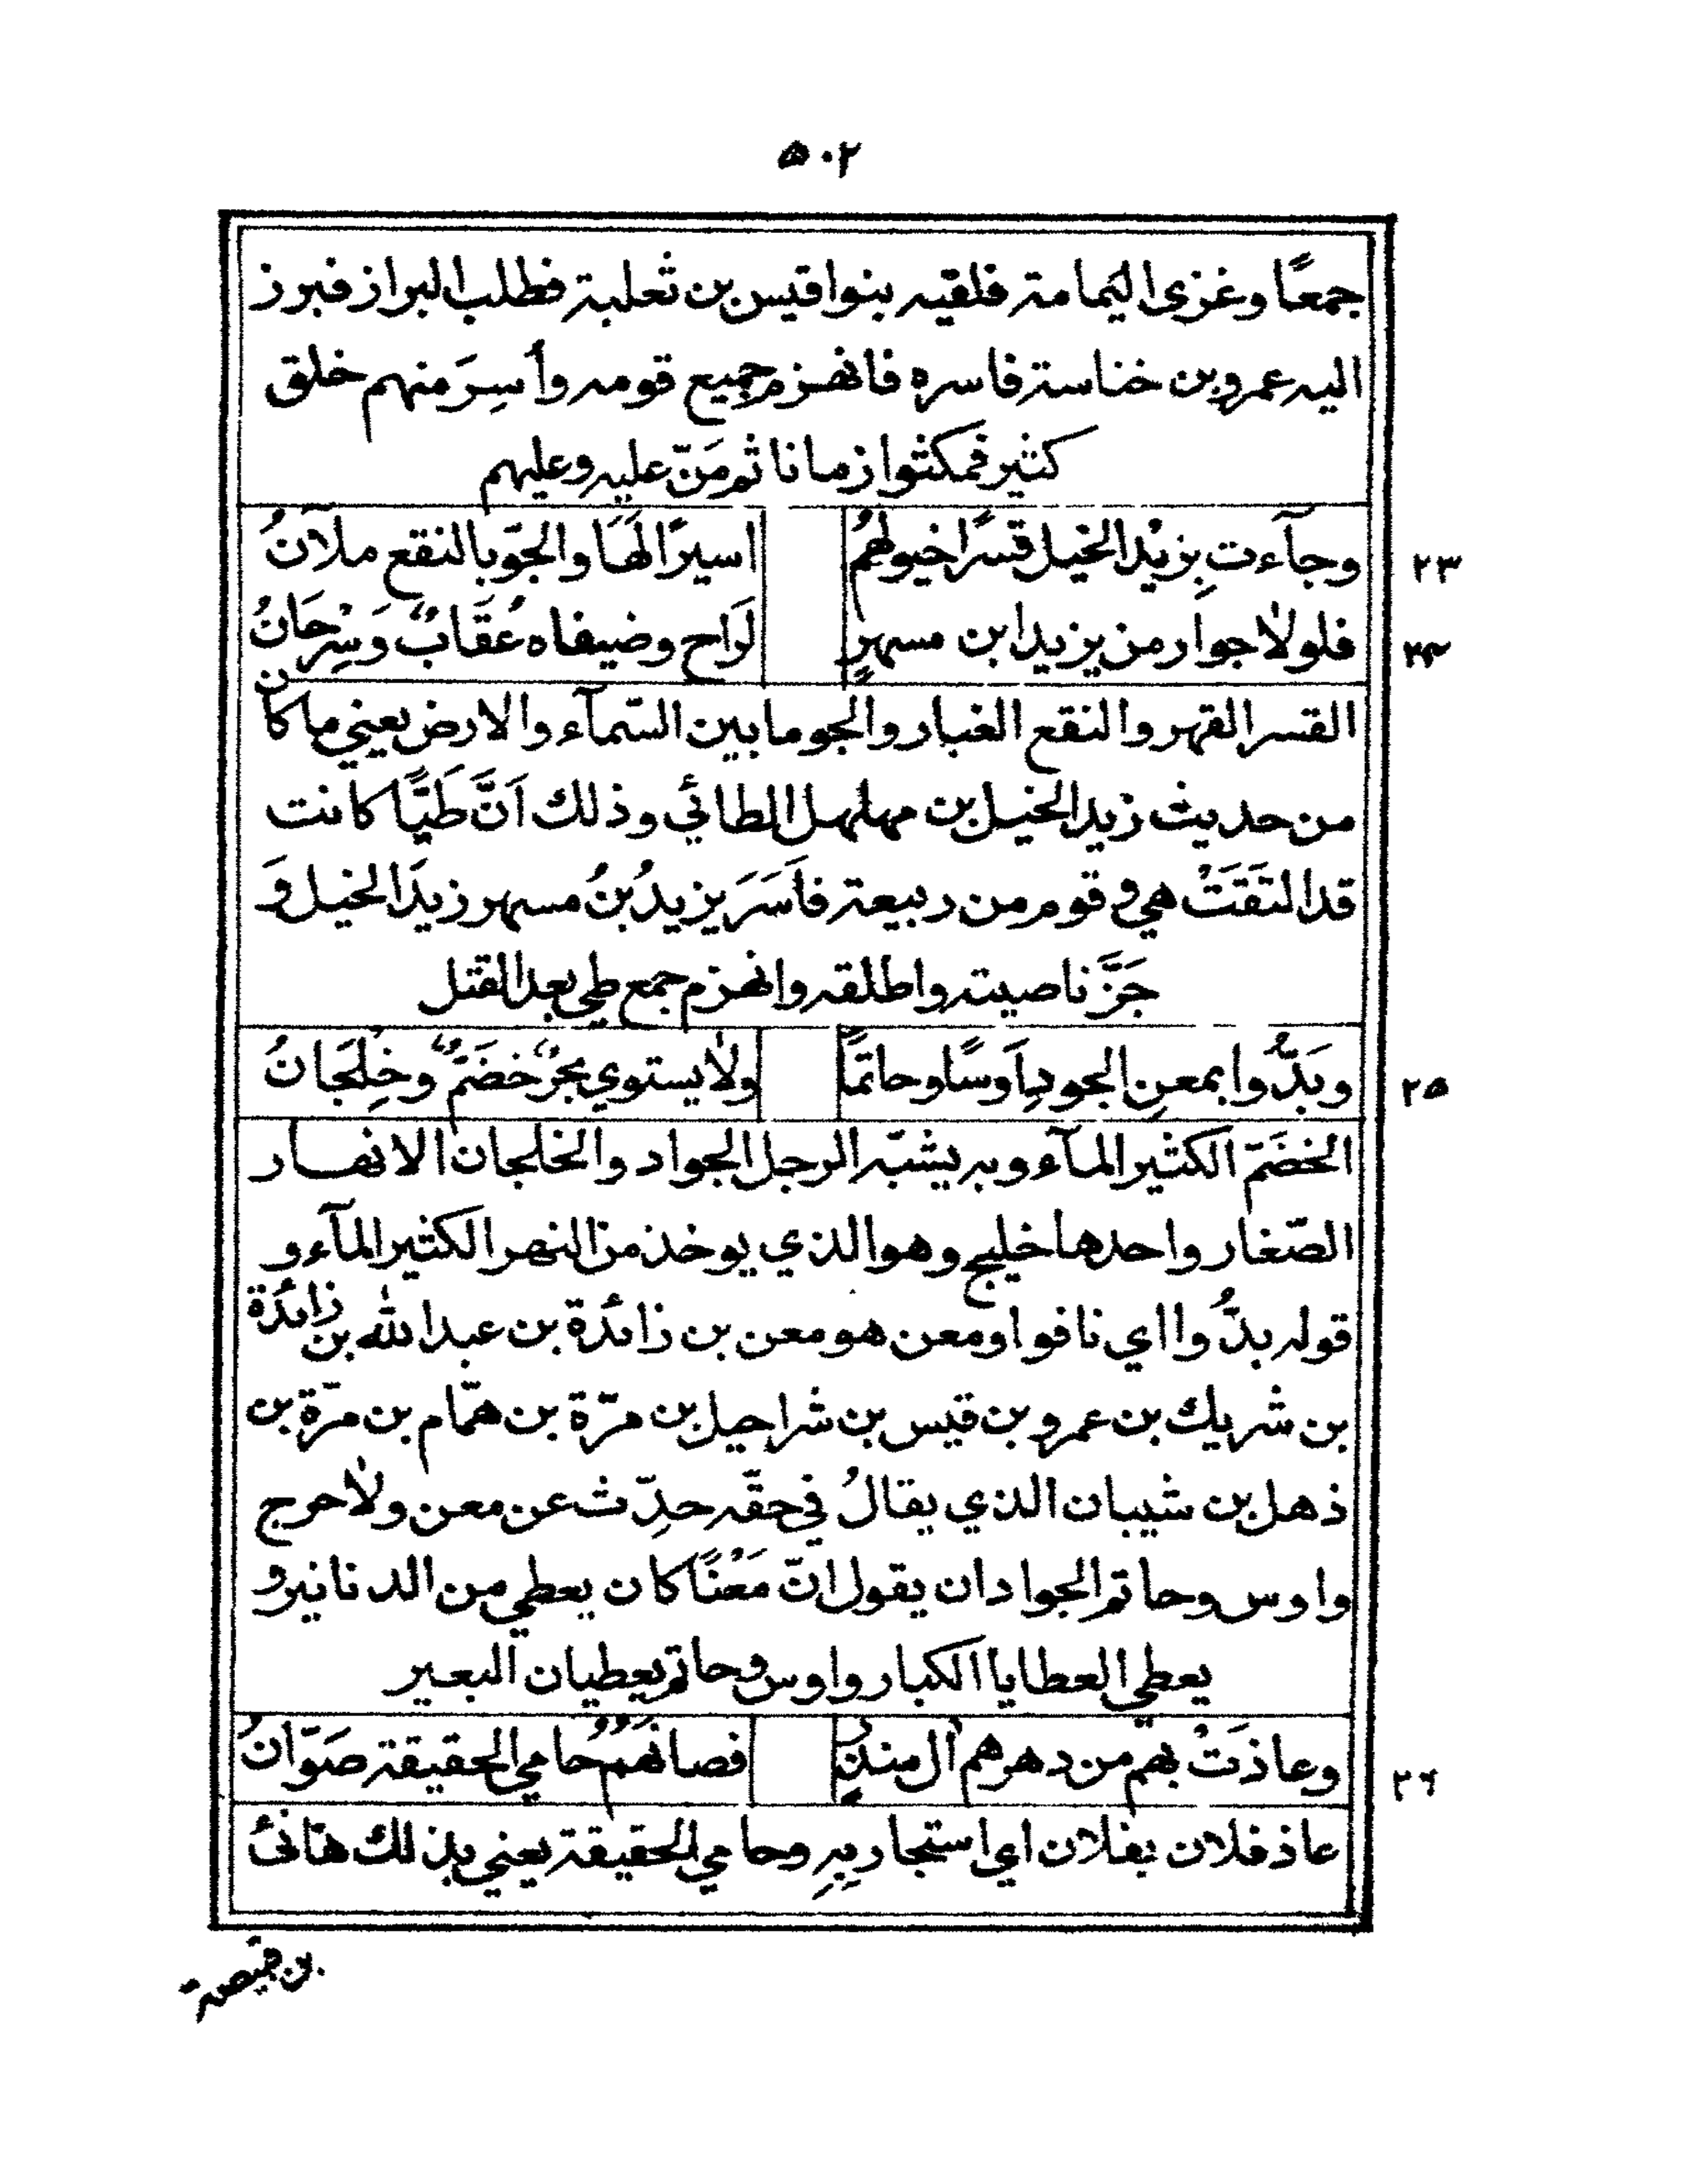 ٥٠٢
جمعًا وغزى اليمامة فلقيه بنوا قيس بن ثعلبة فطلب البراز فبرز
اليه عمرو بن خناسة فاسره فانهزم جميع قومه وأُسِرَ منهم خلق
كثير فمكثوا زمانا ثم مَنّ عليه وعليهم
٢٣ وجآءت بِزيْد الخيل قسرًا خيولهمُ اسيرًا لَهَا والجوّ بالنقع ملآنُ
٢٤ فلولا جوار من يزيد ابن مسهرٍ لَرَاح وضيفاه عُقَابٌ وَسِرْحَانُ
القسر القهر والنقع الغبار والجو ما بين السّمآء والارض يعني ما كان
من حديث زيد الخيل بن مهلهل الطائي وذلك اَنَّ طَيًّا كانت
قد التقَتْ هي وقوم من ربيعة فاَسَرَ يزيدُ بنُ مسهر زيدَ الخيل وَ
جَزَّ ناصيته واطلقه وانهزم جمع طي بعد القتل
٢٥ وبَدُّوا بمعنِ الجودِ اَوسًا وحاتمًا ولا يستوي بحرٌ خضَمٌّ وخِلجَانُ
الخضَمّ الكثير المآء وبه يشبّه الرجل الجواد والخلجان الانهار
الصّغار واحدها خليج وهو الذي يوخذ من النهر الكثير المآء و
قوله بدُّوا اي نافوا ومعن هو معن بن زائدة بن عبد الله بن زائدة
بن شريك بن عمرو بن قيس بن شراحيل بن مرّة بن همّام بن مرّة بن
ذهل بن شيبان الذي يقالُ في حقّه حدِّث عن معن ولا حرج
واوس وحاتم الجوادان يقول انّ مَعْنًا كان يعطي من الدنانير و
يعطي العطايا الكبار واوس وحاتم يعطيان البعير
٢٦ وعاذَتْ بهم من دهرهم اٰل منذرٍ فصانَهُمُ حامي الحقيقة صَوّانُ
عاذ فلان بفلان اي استجار بِهِ وحامي الحقيقة يعني بذلك هانئ
بن قبيصة